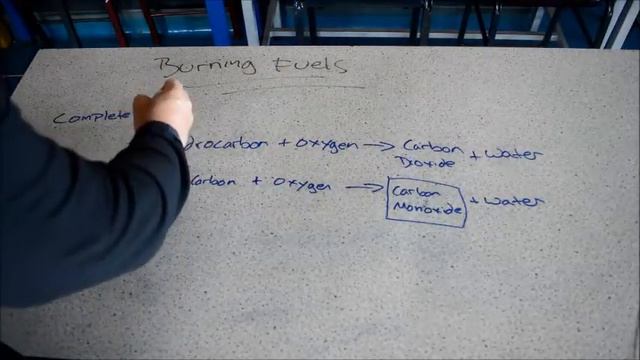 Burning Fuels
Complete
drocarbon + Oxygen → Carbon Dioxide + Water
carbon + Oxygen → Carbon Monoxide + Water